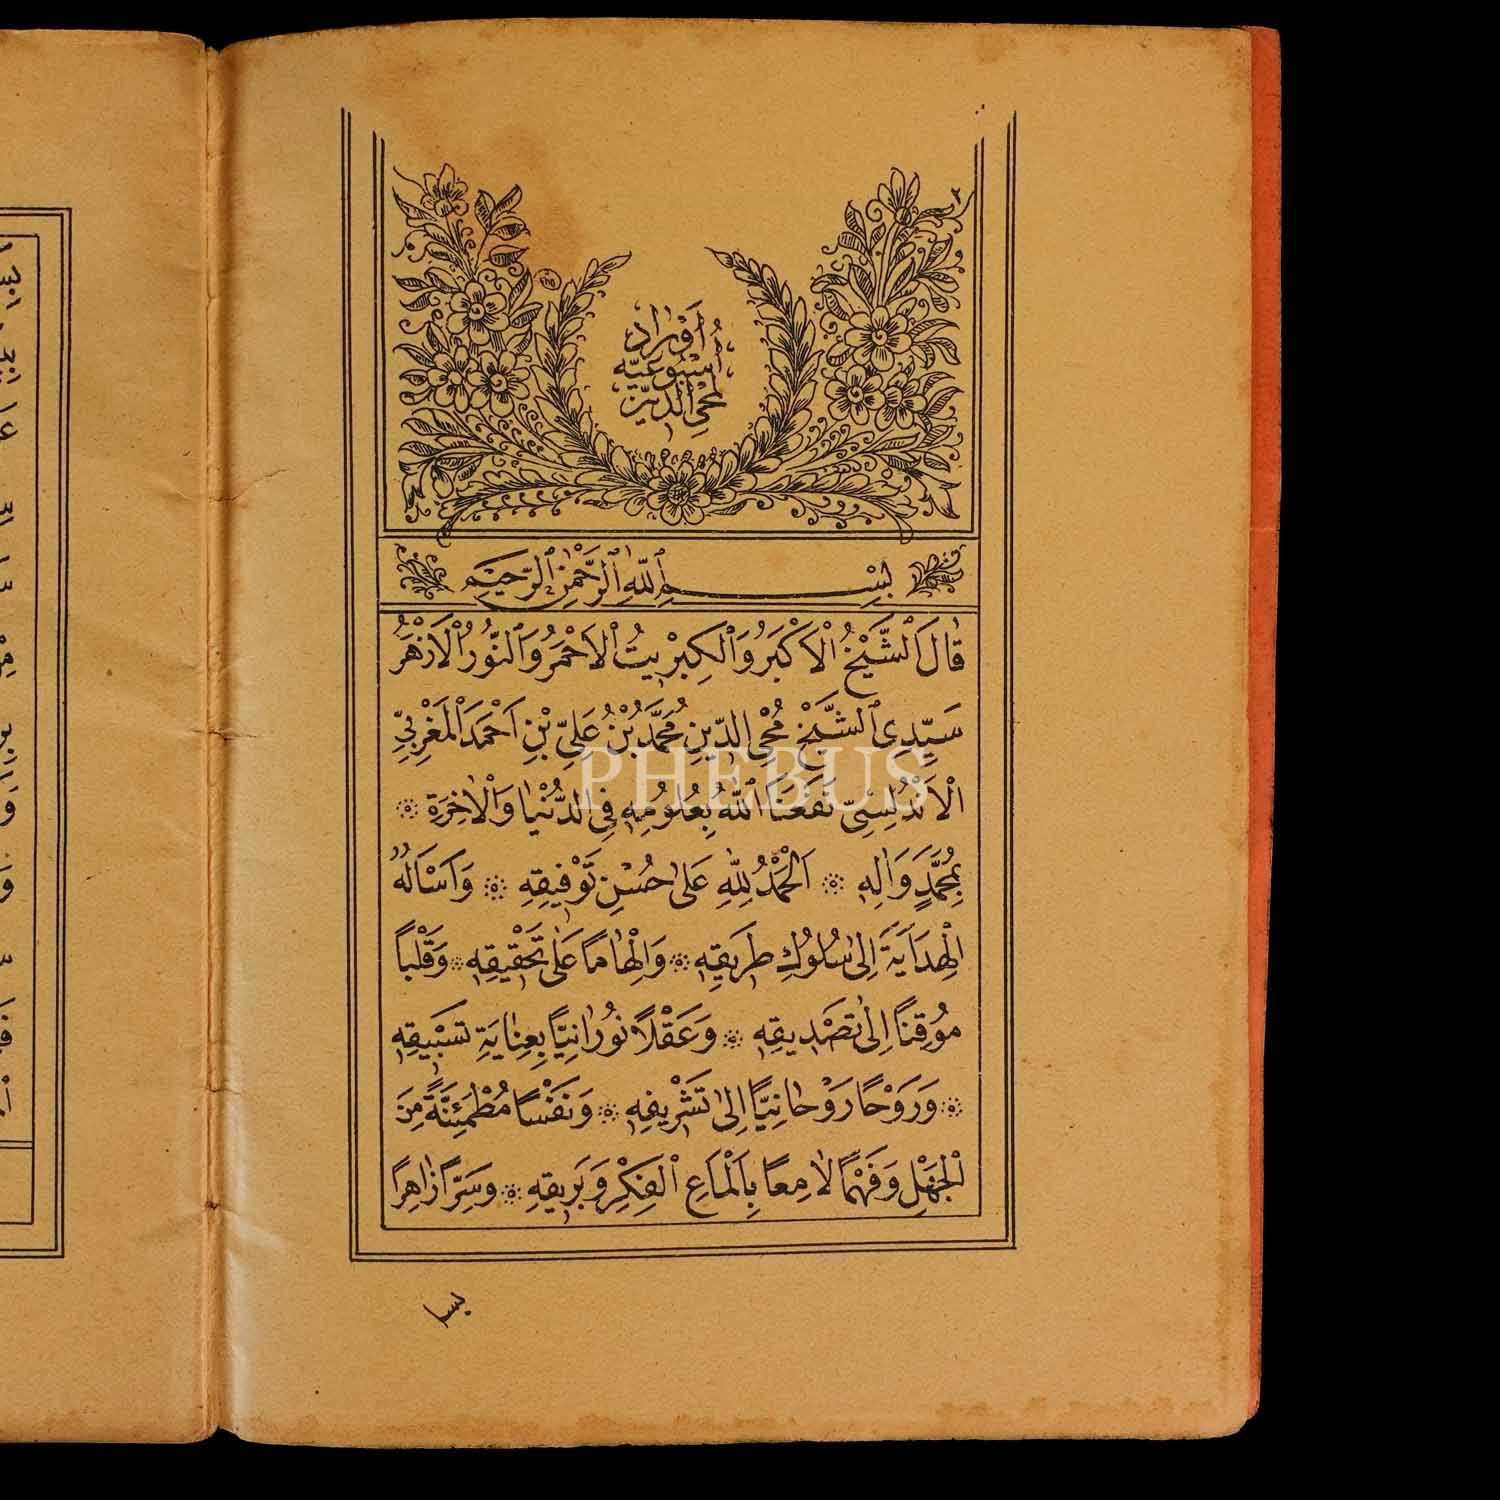 اَوْرَادِ
اُسْبُوعِيَّه
لِمُحْيِى الدِّينْ
بِسْمِ اللّٰهِ الرَّحْمٰنِ الرَّحِيْمِ
قَالَ الشَّيْخُ الْاَكْبَرُ وَالْكِبْرِيتُ الْاَحْمَرُ وَالنُّورُ الْاَزْهَرُ
سَيِّدِى الشَّيْخْ مُحْىِ الدِّينِ مُحَمَّدُ بْنُ عَلِىِّ بْنِ اَحْمَدَ الْمَغْرِبِىِّ
PHEBUS
الْاَنْدُلِسِىِّ نَفَعَنَا اللّٰهُ بِعُلُومِهِ فِى الدُّنْيَا وَالْاٰخِرَةِ
بِمُحَمَّدٍ وَاٰلِهِ اَلْحَمْدُ لِلّٰهِ عَلٰى حُسْنِ تَوْفِيقِهِ وَاَسْاَلُهُ
الْهِدَايَةَ اِلٰى سُلُوكِ طَرِيقِهِ وَاِلْهَامًا عَلٰى تَحْقِيقِهِ وَقَلْبًا
مُوقِنًا اِلٰى تَصْدِيقِهِ وَعَقْلًا نُورَانِيًّا بِعِنَايَةِ تَسْبِيقِهِ
وَرَوْحًا رَوْحَانِيًّا اِلٰى تَشْرِيفِهِ وَنَفْسًا مُطْمَئِنَّةً مِنَ
الْجَهْلِ وَفَهْمًا لَامِعًا بِاَلْمَاعِ الْفِكْرِ وَبَرِيقِهِ وَسِرًّا زَاهِرًا